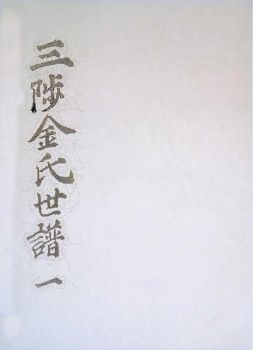 三陟金氏世譜 一